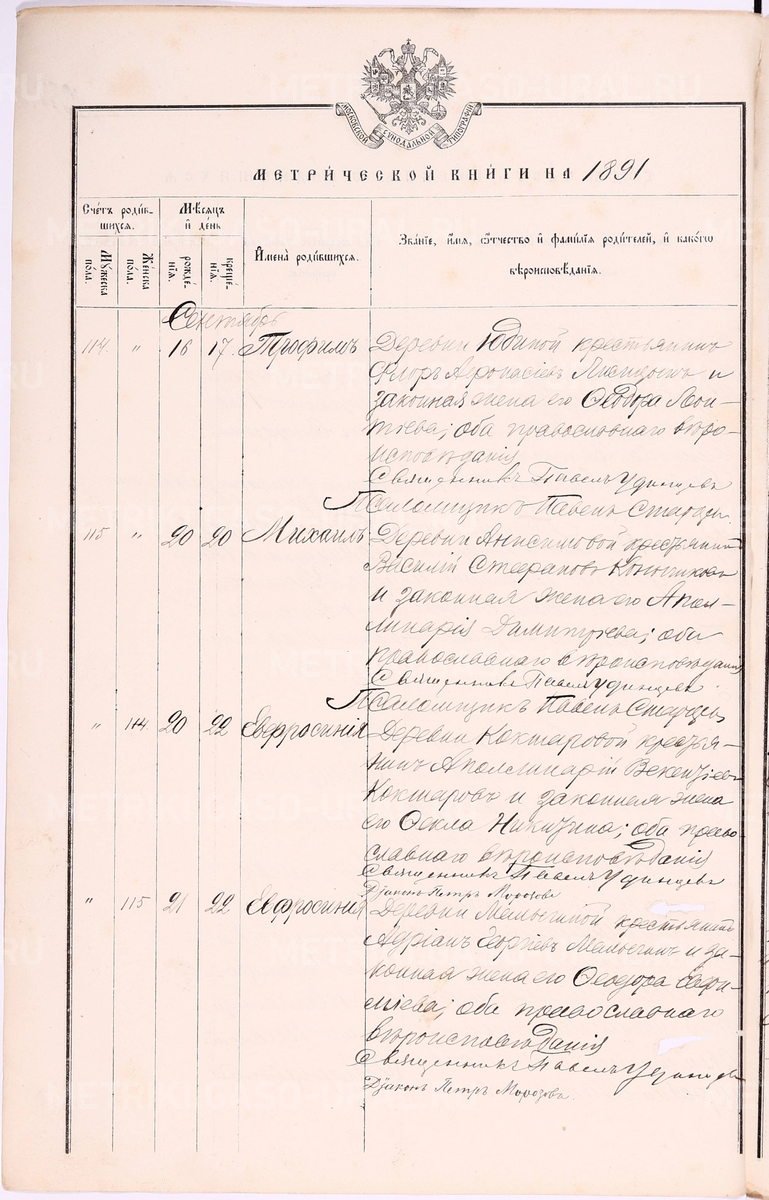 МОСКОВСКОЙ СѴНОДАЛЬНОЙ ТИПОГРАФІИ
МЕТРИЧЕСКОЙ КНИГИ НА 1891
Счетъ родив-
шихся.
Мѣсяцъ
и день
Мужеска
пола.
Женска
пола.
рожде-
нія.
креще-
нія.
Имена родившихся.
Званіе, имя, отчество и фамилія родителей, и какого
вѣроисповѣданія.
Сентябрь
114 " 16 17 Трофимъ Деревни Юдиной крестьянинъ
Флоръ Афонасіевъ и
законная жена его Ѳеодора Леон-
тіева; оба православнаго вѣро-
исповѣданія
Священникъ Павелъ Удинцевъ
Псаломщикъ Павелъ Старцевъ
115 " 20 20 Михаилъ Деревни Анисимовой крестьянинъ
Василій Стефановъ
и законная жена его Апол-
линарія Димитріева; оба
православнаго вѣроисповѣданія
Священникъ Павелъ Удинцевъ
Псаломщикъ Павелъ Старцевъ
" 114 20 22 Евфросинія Деревни Кокшаровой крестья-
нинъ Аполлинарій Викентіевъ
Кокшаровъ и законная жена
его Ѳекла Никитина; оба право-
славнаго вѣроисповѣданія
Священникъ Павелъ Удинцевъ
Діаконъ Петръ Морозовъ
" 115 21 22 Евфросинія Деревни Мальгиной крестьянинъ
Адріанъ Георгіевъ Мальгинъ и за-
конная жена его Ѳеодора Евфи-
міева; оба православнаго
вѣроисповѣданія
Священникъ Павелъ Удинцевъ
Діаконъ Петръ Морозовъ